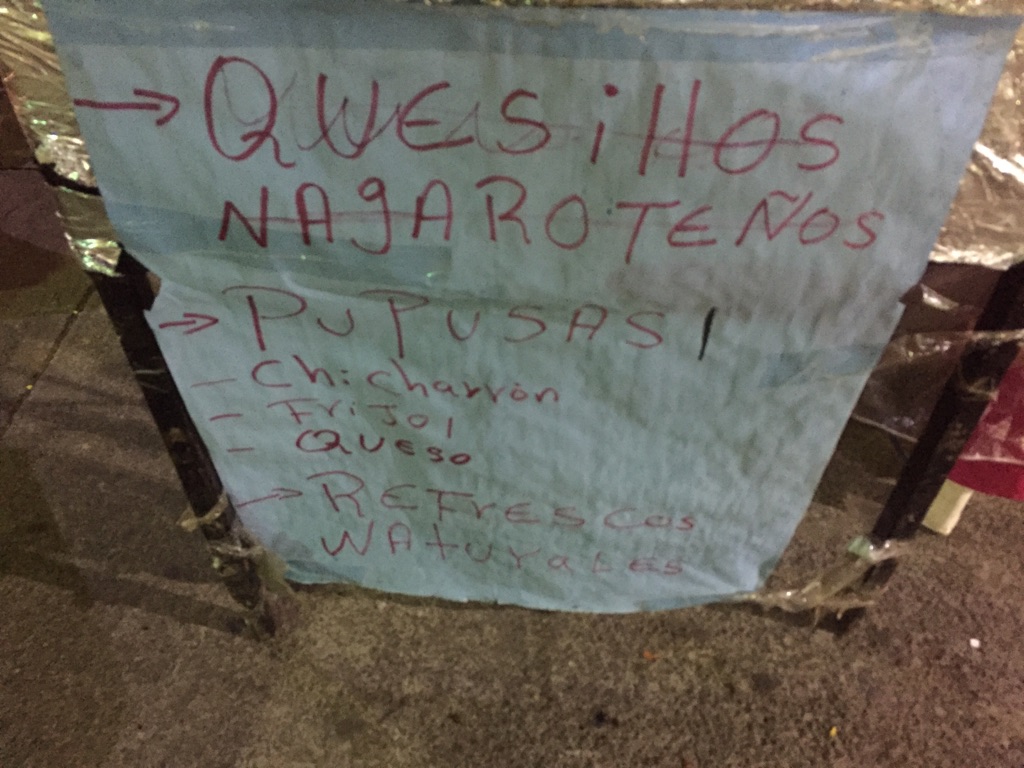 → QUESillOS
NAgAROTEÑOS
→ PUPUSAS
- Chicharrón
- FriJol
- QUESO
→ REFrEScos
NAturaLES